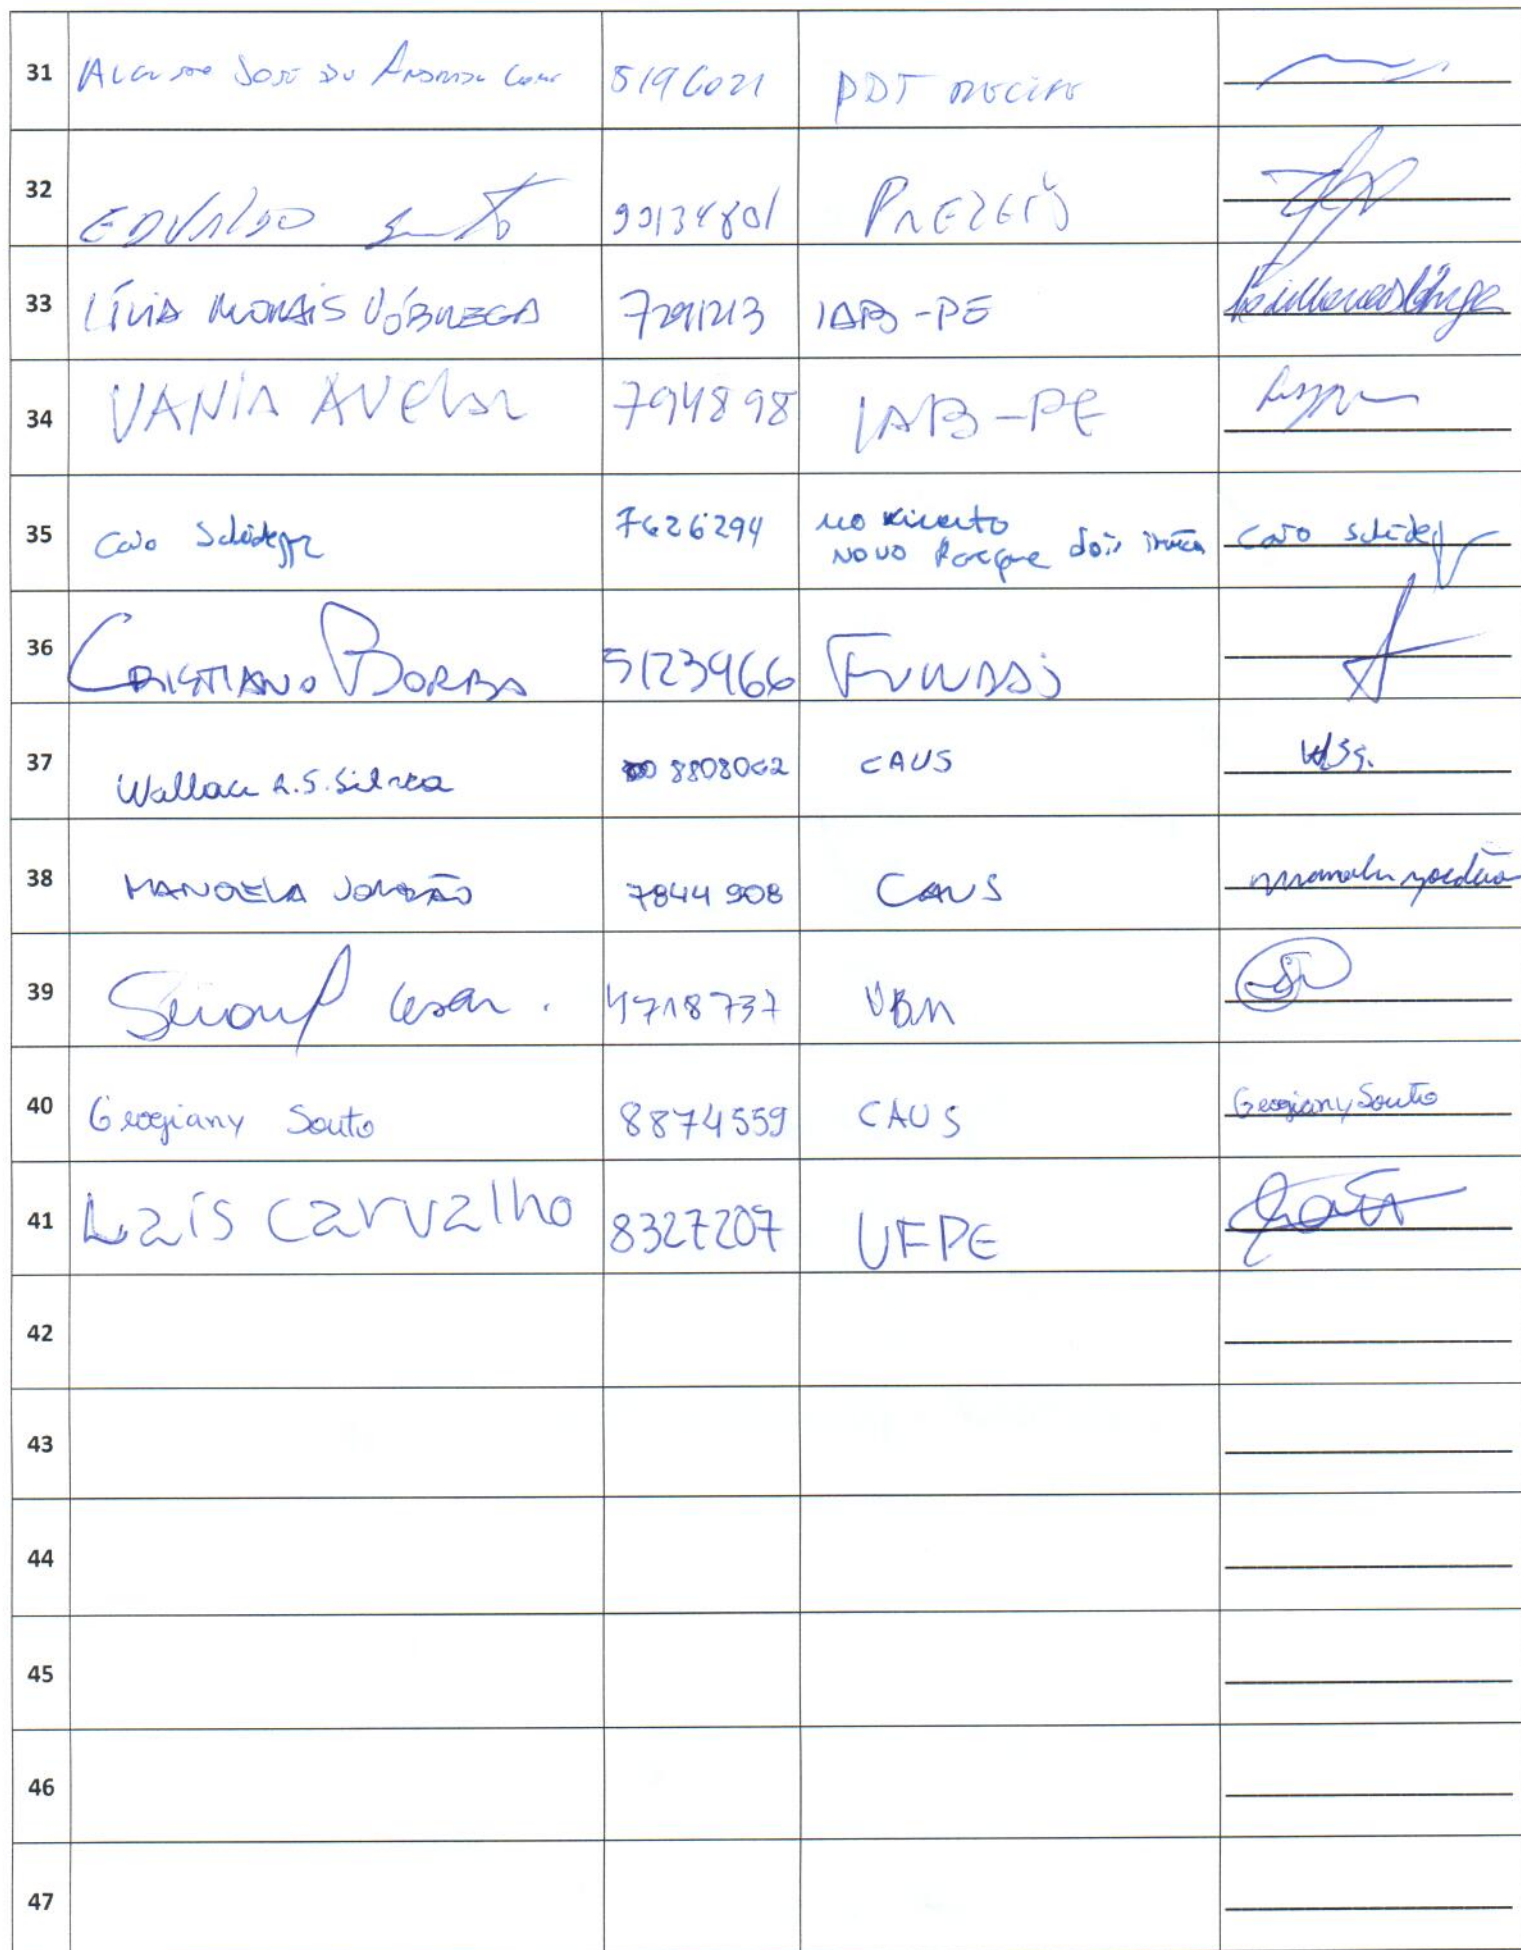 31 José de 5196021 PDT Recife
32 EDVALDO 99134801 PREZEIS
33 LÍVIA MORAIS NÓBREGA 7291213 IAB-PE
34 VANIA AVELAR 794898 IAB-PE
35 Caio 7626294 movimento
novo parque dois irmãos Caio
36 CRISTIANO BORBA 5123966 FUNDAJ
37 Wallace R.S. Silva 8808062 CAUS WSS.
38 MANOELA JORDÃO 7844908 CAUS Manoela Jordão
39 Cesar. 4718737 UBM
40 Geogiany Souto 8874559 CAUS Geogiany Souto
41 Laís Carvalho 8327207 UFPE
42
43
44
45
46
47